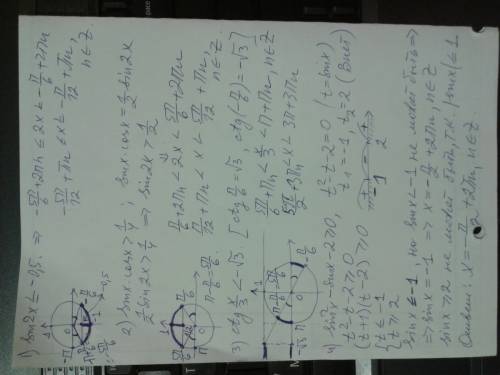 1) sin2x ≤ -0,5. ⇒ -5π/6+2πn ≤ 2x ≤ -π/6+2πn
-5π/12+πn ≤ x ≤ -π/12+πn, n∈Z
-0,5
-π
0
-π/6
2) sinx·cosx > 1/4 ; sinx·cosx = 1/2·sin2x
1/2 sin2x > 1/4 ⇒ sin2x > 1/2
π/6+2πn < 2x < 5π/6+2πn
π/12+πn < x < 5π/12+πn, n∈Z.
5π/6
π/6
π
0
3) ctg x/3 < -√3. [ctg π/6 = √3, ctg(-π/6) = -√3]
5π/6+πn < x/3 < π+πn, n∈Z
5π/2+3πn < x < 3π+3πn
π-π/6=5π/6
-√3
π
0
4) sin²x-sinx-2≥0, t²-t-2=0 (t=sinx)
t²-t-2≥0 t1=-1, t2=2 (Виет)
(t+1)(t-2)≥0
+ - +
-1 2
t≤-1
t≥2
sinx≤-1, но sinx<-1 не может быть ⇒
⇒ sinx=-1 ⇒ x=-π/2+2πn, n∈Z
sinx≥2 не может быть, т.к. |sinx|≤1
Ответ: x=-π/2+2πn, n∈Z.